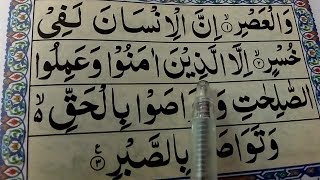 وَالْعَصْرِ ۙ۱ اِنَّ الْاِنْسَانَ لَفِىْ
خُسْرٍ ۙ۲ اِلَّا الَّذِيْنَ اٰمَنُوْا وَعَمِلُوا
الصّٰلِحٰتِ وَتَوَاصَوْا بِالْحَقِّ ۙ۬
وَتَوَاصَوْا بِالصَّبْرِ ۳ع